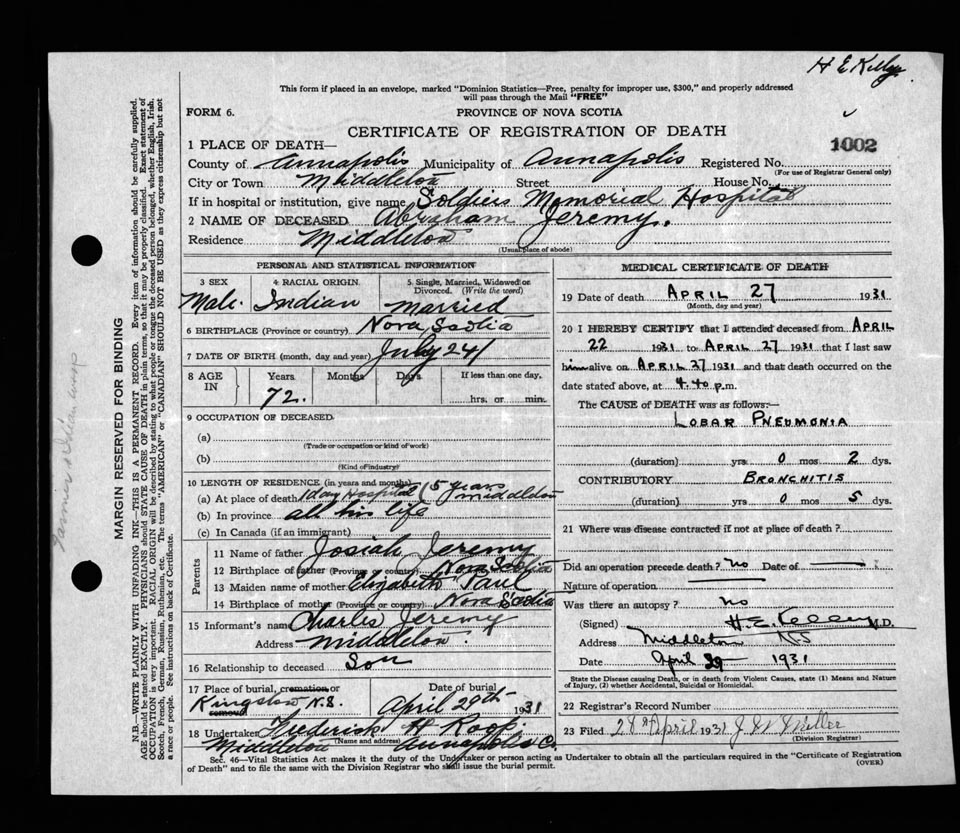 H E Kelley
This form if placed in an envelope, marked "Dominion Statistics—Free, penalty for improper use, $300," and properly addressed
will pass through the Mail "FREE"
FORM 6.
PROVINCE OF NOVA SCOTIA
CERTIFICATE OF REGISTRATION OF DEATH
1 PLACE OF DEATH—
1002
County of Annapolis Municipality of Annapolis Registered No.
(For use of Registrar General only)
City or Town Middleton Street House No.
If in hospital or institution, give name Soldiers Memorial Hospital
2 NAME OF DECEASED Abraham Jeremy.
Residence Middleton
(Usual place of abode)
PERSONAL AND STATISTICAL INFORMATION
3 SEX 4 RACIAL ORIGIN 5 Single, Married, Widowed or
Divorced. (Write the word)
Male. Indian Married
6 BIRTHPLACE (Province or country) Nova Scotia
7 DATE OF BIRTH (month, day and year) July 24
8 AGE IN Years Months Days If less than one day.
72. hrs. or min.
9 OCCUPATION OF DECEASED
(a)
(Trade or occupation or kind of work)
(b)
(Kind of industry)
10 LENGTH OF RESIDENCE (in years and months)
(a) At place of death 1 day Hospital (5 years middleton
(b) In province all his life
(c) In Canada (if an immigrant)
Parents
11 Name of father Josiah Jeremy
12 Birthplace of father (Province or country) Nova Scotia
13 Maiden name of mother Elizabeth Paul
14 Birthplace of mother (Province or country) Nova Scotia
15 Informant's name Charles Jeremy
Address Middleton.
16 Relationship to deceased Son
17 Place of burial, cremation or removal Date of burial
Kingston N.S. April 29th 1931
18 Undertaker Frederick W Roop.
(Name and address)
Middleton Annapolis Co.
MEDICAL CERTIFICATE OF DEATH
19 Date of death APRIL 27 1931
(Month, day and year)
20 I HEREBY CERTIFY that I attended deceased from APRIL
22 1931 to APRIL 27 1931 that I last saw
him alive on APRIL 27 1931 and that death occurred on the
date stated above, at 4.40 p.m.
The CAUSE OF DEATH was as follows:—
LOBAR PNEUMONIA
(duration) yrs 0 mos 2 dys.
CONTRIBUTORY BRONCHITIS
(duration) yrs 0 mos 5 dys.
21 Where was disease contracted if not at place of death?
Did an operation precede death? no Date of
Nature of operation
Was there an autopsy? no
(Signed) H E. Kelley M.D.
Address Middleton N-S
Date April 1931
State the Disease causing Death, or in death from Violent Causes, state (1) Means and
Nature of Injury, (2) whether Accidental, Suicidal or Homicidal.
22 Registrar's Record Number
23 Filed 28th April 1931 J W Miller
(Division Registrar)
Sec. 46—Vital Statistics Act makes it the duty of the Undertaker or person acting as Undertaker to obtain all the particulars required in the "Certificate of Registration
of Death" and to file the same with the Division Registrar who shall issue the burial permit.
(OVER)
MARGIN RESERVED FOR BINDING
N.B.—WRITE PLAINLY WITH UNFADING INK—THIS IS A PERMANENT RECORD. Every item of information should be carefully supplied.
AGE should be stated EXACTLY. PHYSICIANS should STATE CAUSE OF DEATH in plain terms, so that it may be properly classified. Exact statement of
OCCUPATION is very important. RACIAL ORIGIN will be described by stating to what people or tongue the deceased person belonged, whether English, Irish,
Scotch, French, German, Russian, Ruthenian, etc. The terms "AMERICAN" or "CANADIAN" SHOULD NOT BE USED as they express citizenship but not
a race or people. See instructions on back of Certificate.